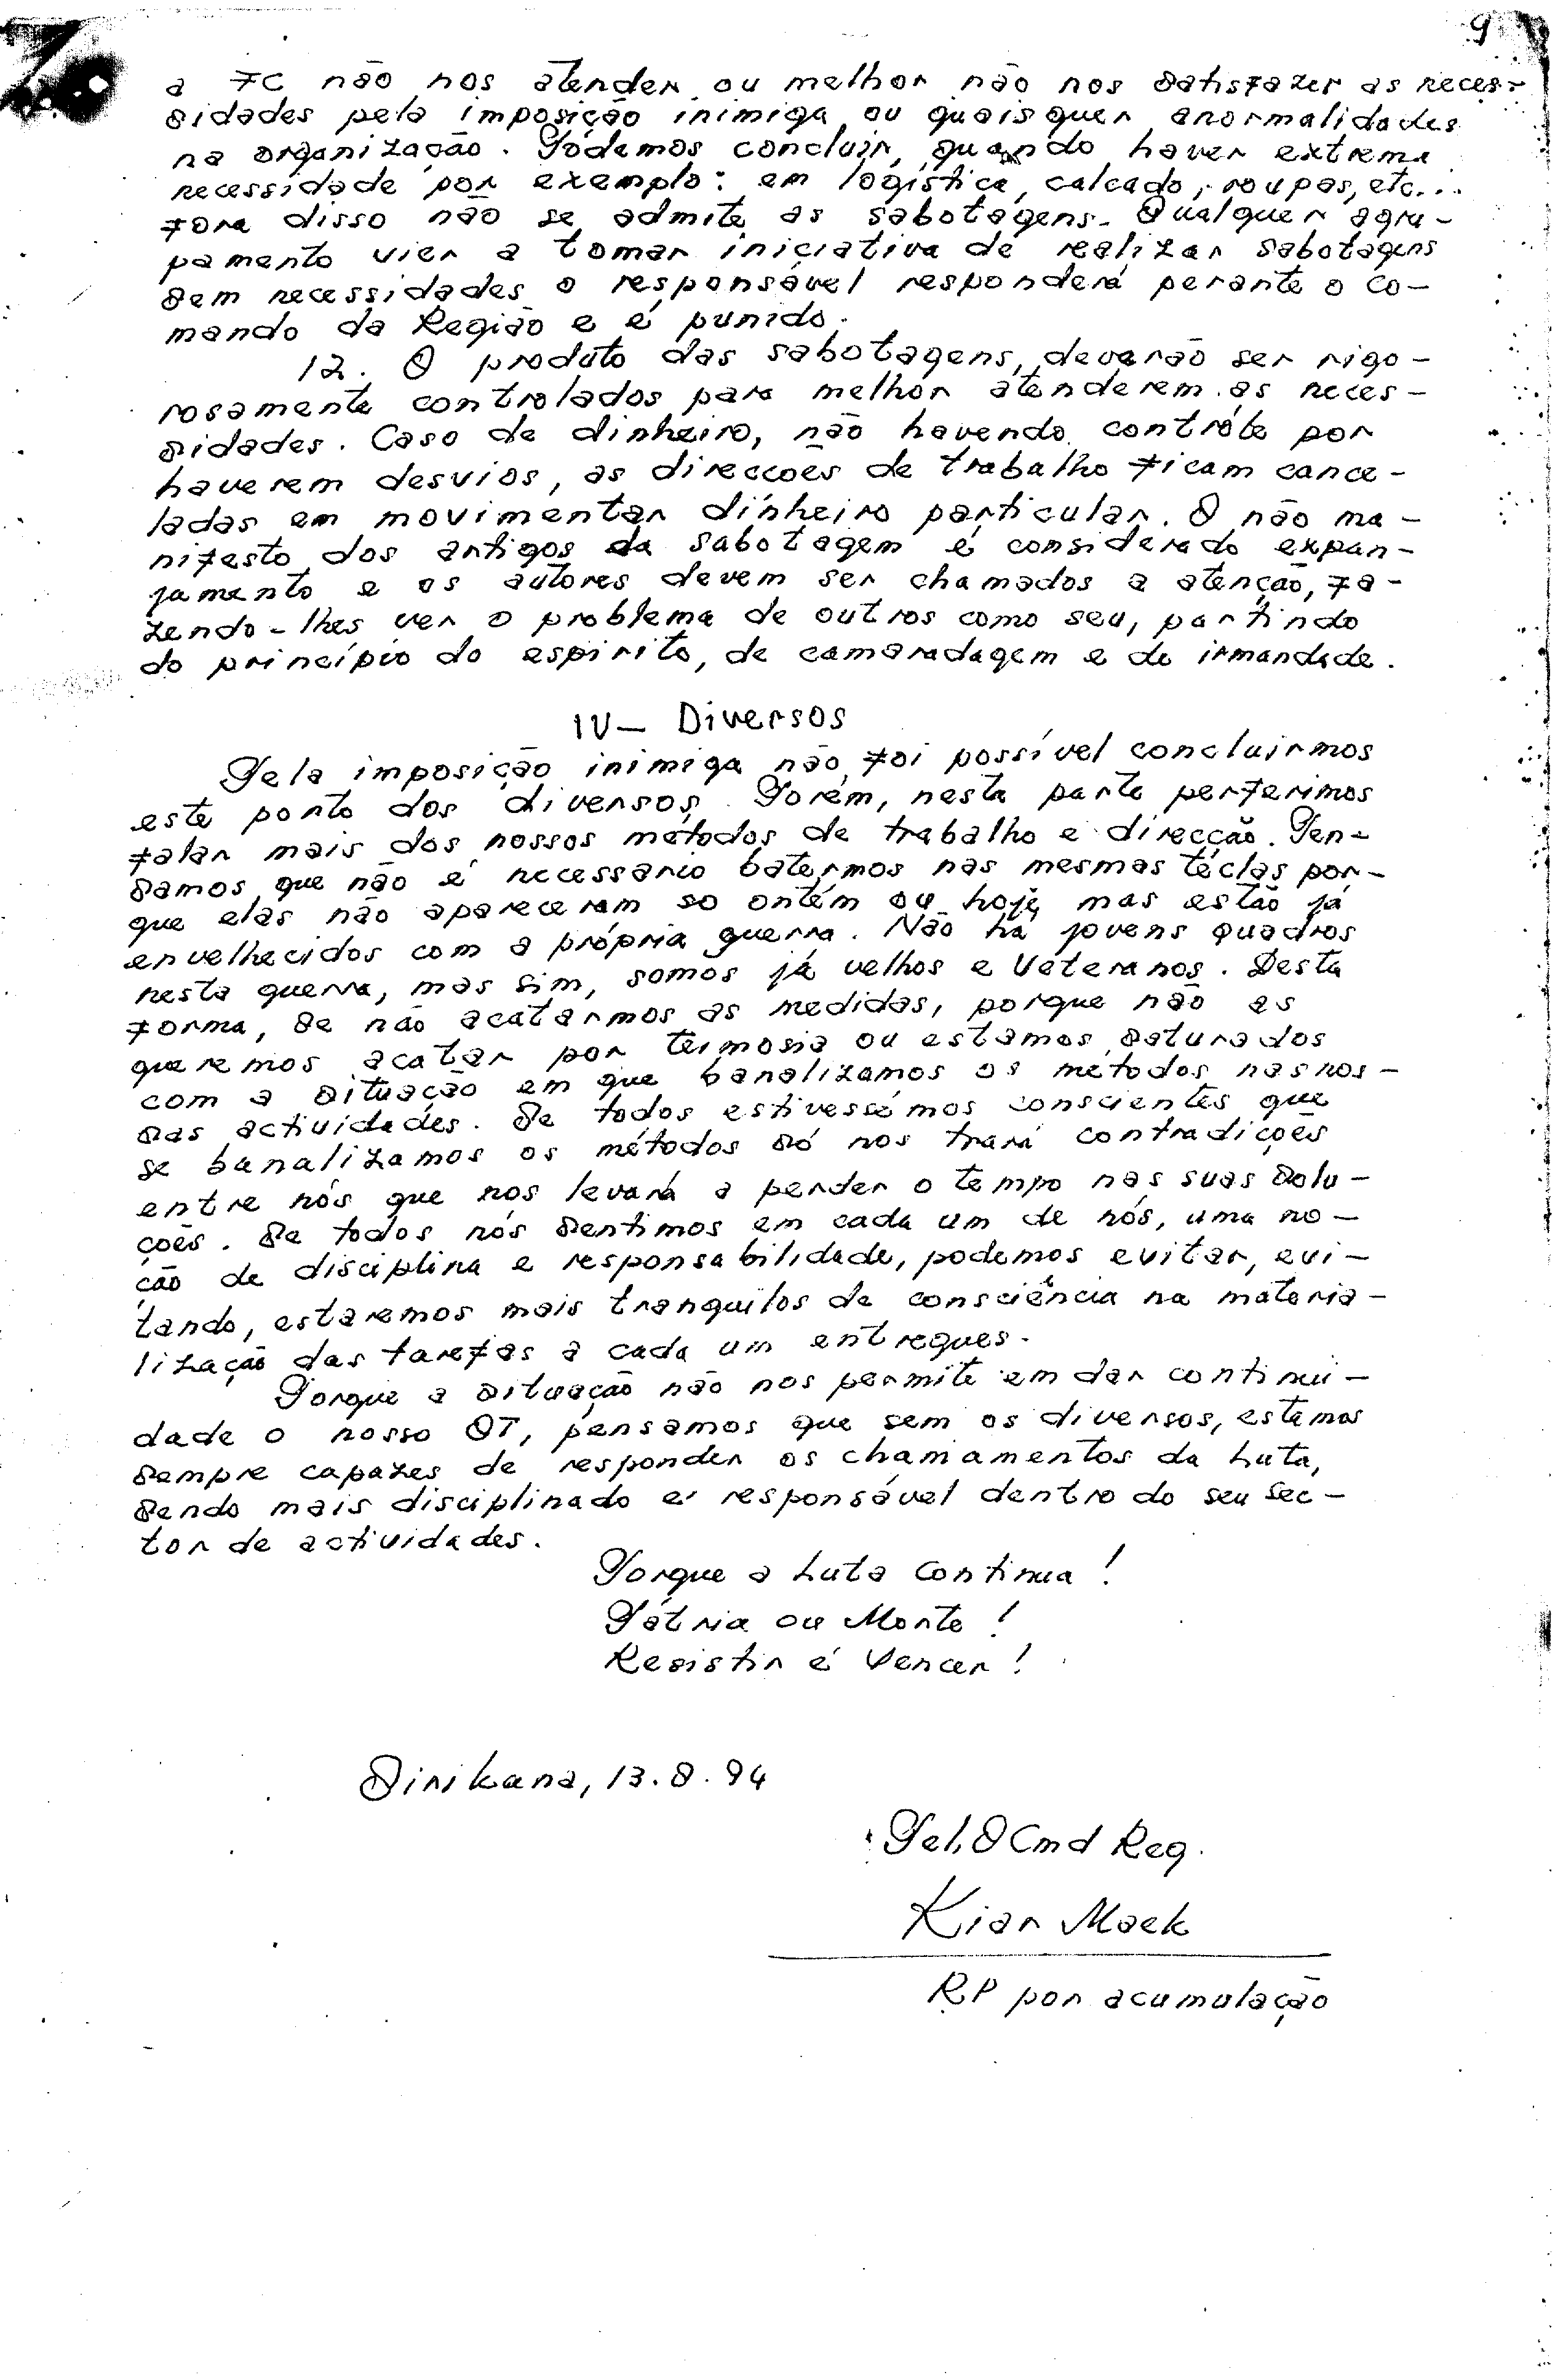 9
a FC não nos atender ou melhor não nos satisfazer as neces-
sidades pela imposição inimiga ou quaisquer anormalidades
na organização. Pódemos concluir, quando haver extrema
necessidade por exemplo: em logística, calcado, roupas, etc...
fora disso não se admite as sabotagens. Qualquer agru-
pamento vier a tomar iniciativa de realizar sabotagens
sem necessidades o responsável responderá perante o co-
mando da Região e é punido.
12. O produto das sabotagens, deverão ser rigo-
rosamente controlados para melhor atenderem as neces-
sidades. Caso de dinheiro, não havendo contróle por
haverem desvios, as direccões de trabalho ficam cance-
ladas em movimentar dinheiro particular. O não ma-
nifesto dos artigos da sabotagem é considerado expan-
jamento e os autores devem ser chamados a atenção, fa-
zendo-lhes ver o problema de outros como seu, partindo
do princípio do espirito, de camaradagem e de irmandade.
IV- Diversos
Pela imposição inimiga não foi possível concluirmos
este ponto dos diversos. Porém, nesta parte perferimos
falar mais dos nossos métodos de trabalho e direcção. Pen-
samos que não é necessario batermos nas mesmas téclas por-
que elas não apareceram so ontém ou hoje mas estão já
envelhecidos com a própria guerra. Não há jovens quadros
nesta guerra, mas sim, somos já velhos e Veteranos. Desta
forma, se não acatarmos as medidas, porque não as
queremos acatar por teimosia ou estamos saturados
com a situação em que banalizamos os metodos nas nos-
sas actividades. Se todos estivessémos conscientes que
se banalizamos os métodos só nos trará contradições
entre nós que nos levará a perder o tempo nas suas solu-
ções. Se todos nós sentimos em cada um de nós, uma no-
ção de disciplina e responsabilidade, podemos evitar, evi-
tando, estaremos mais tranquilos de consciência na materia-
lização das tarefas a cada um entregues.
Porque a situação não nos permite em dar continui-
dade o nosso OT, pensamos que sem os diversos, estamos
sempre capazes de responder os chamamentos da Luta,
sendo mais disciplinado e responsável dentro do seu sec-
tor de actividades.
Porque a Luta Continua!
Pátria ou Morte!
Resistir é Vencer!
Sirikana, 13.8.94
Pel,O Cmd Reg.
Kiar Maek
RP por acumulação